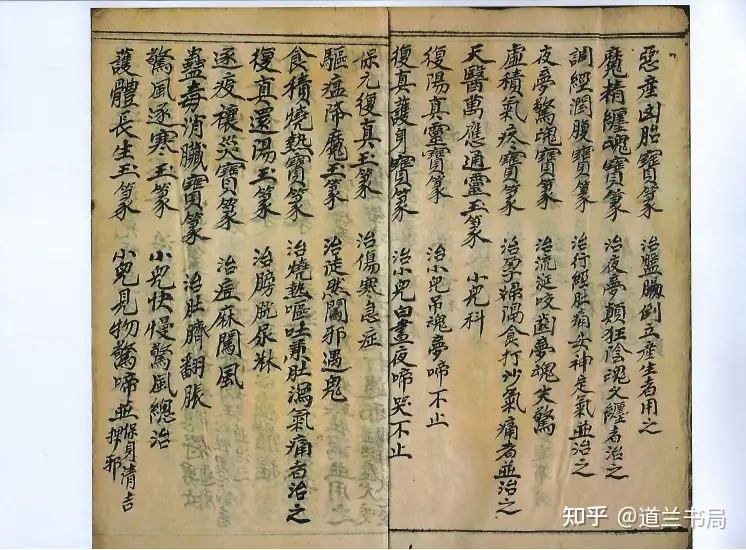 惡産凶胎寶篆 治盤腸倒立産生者用之
魔精纏魂寶篆 治夜夢顛狂陰魂久纏者治之
調經潤腹寶篆 治行經肚痛安神定氣並治之
夜夢驚魂寶篆 治流涎咬齒夢魂失驚
虛積氣疼寶篆 治孕婦隔食打沙氣痛者並治之
天醫萬應通靈玉篆 小兒科
復陽真靈寶篆 治小兒吊魂夢啼不止
復真護身寶篆 治小兒白晝夜啼哭不止
保元復真玉篆 治傷寒急症
驅瘟降魔玉篆 治徒然闖邪遇鬼
食積燒熱寶篆 治燒熱嘔吐兼肚瀉氣痛者治之
復真還陽玉篆 治膀胱尿淋
逐疫禳災寶篆 治痘麻闖風
蠱毒消臟寶篆 治肚臍翻脹
驚風逐寒玉篆 小兒快慢驚風總治
護體長生玉篆 小兒見物驚啼並保身清吉 邪
知乎 @道兰书局